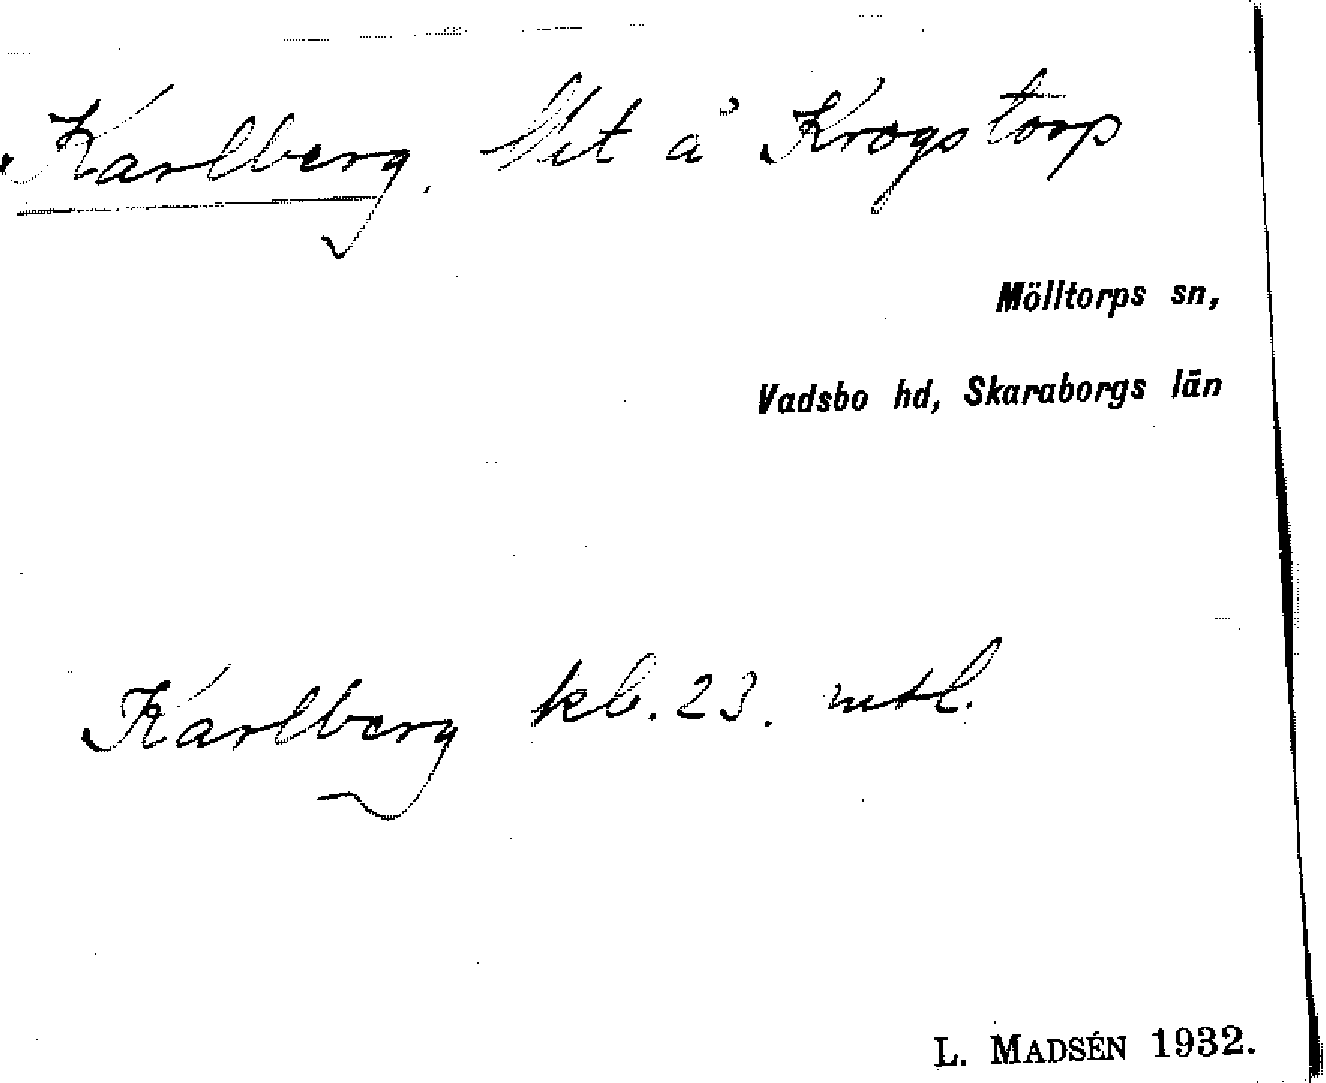 Karlberg, lht å Krogstorp
Mölltorps sn,
Vadsbo hd, Skaraborgs län
Karlberg kb. 23. mtl.
L. MADSÉN 1932.